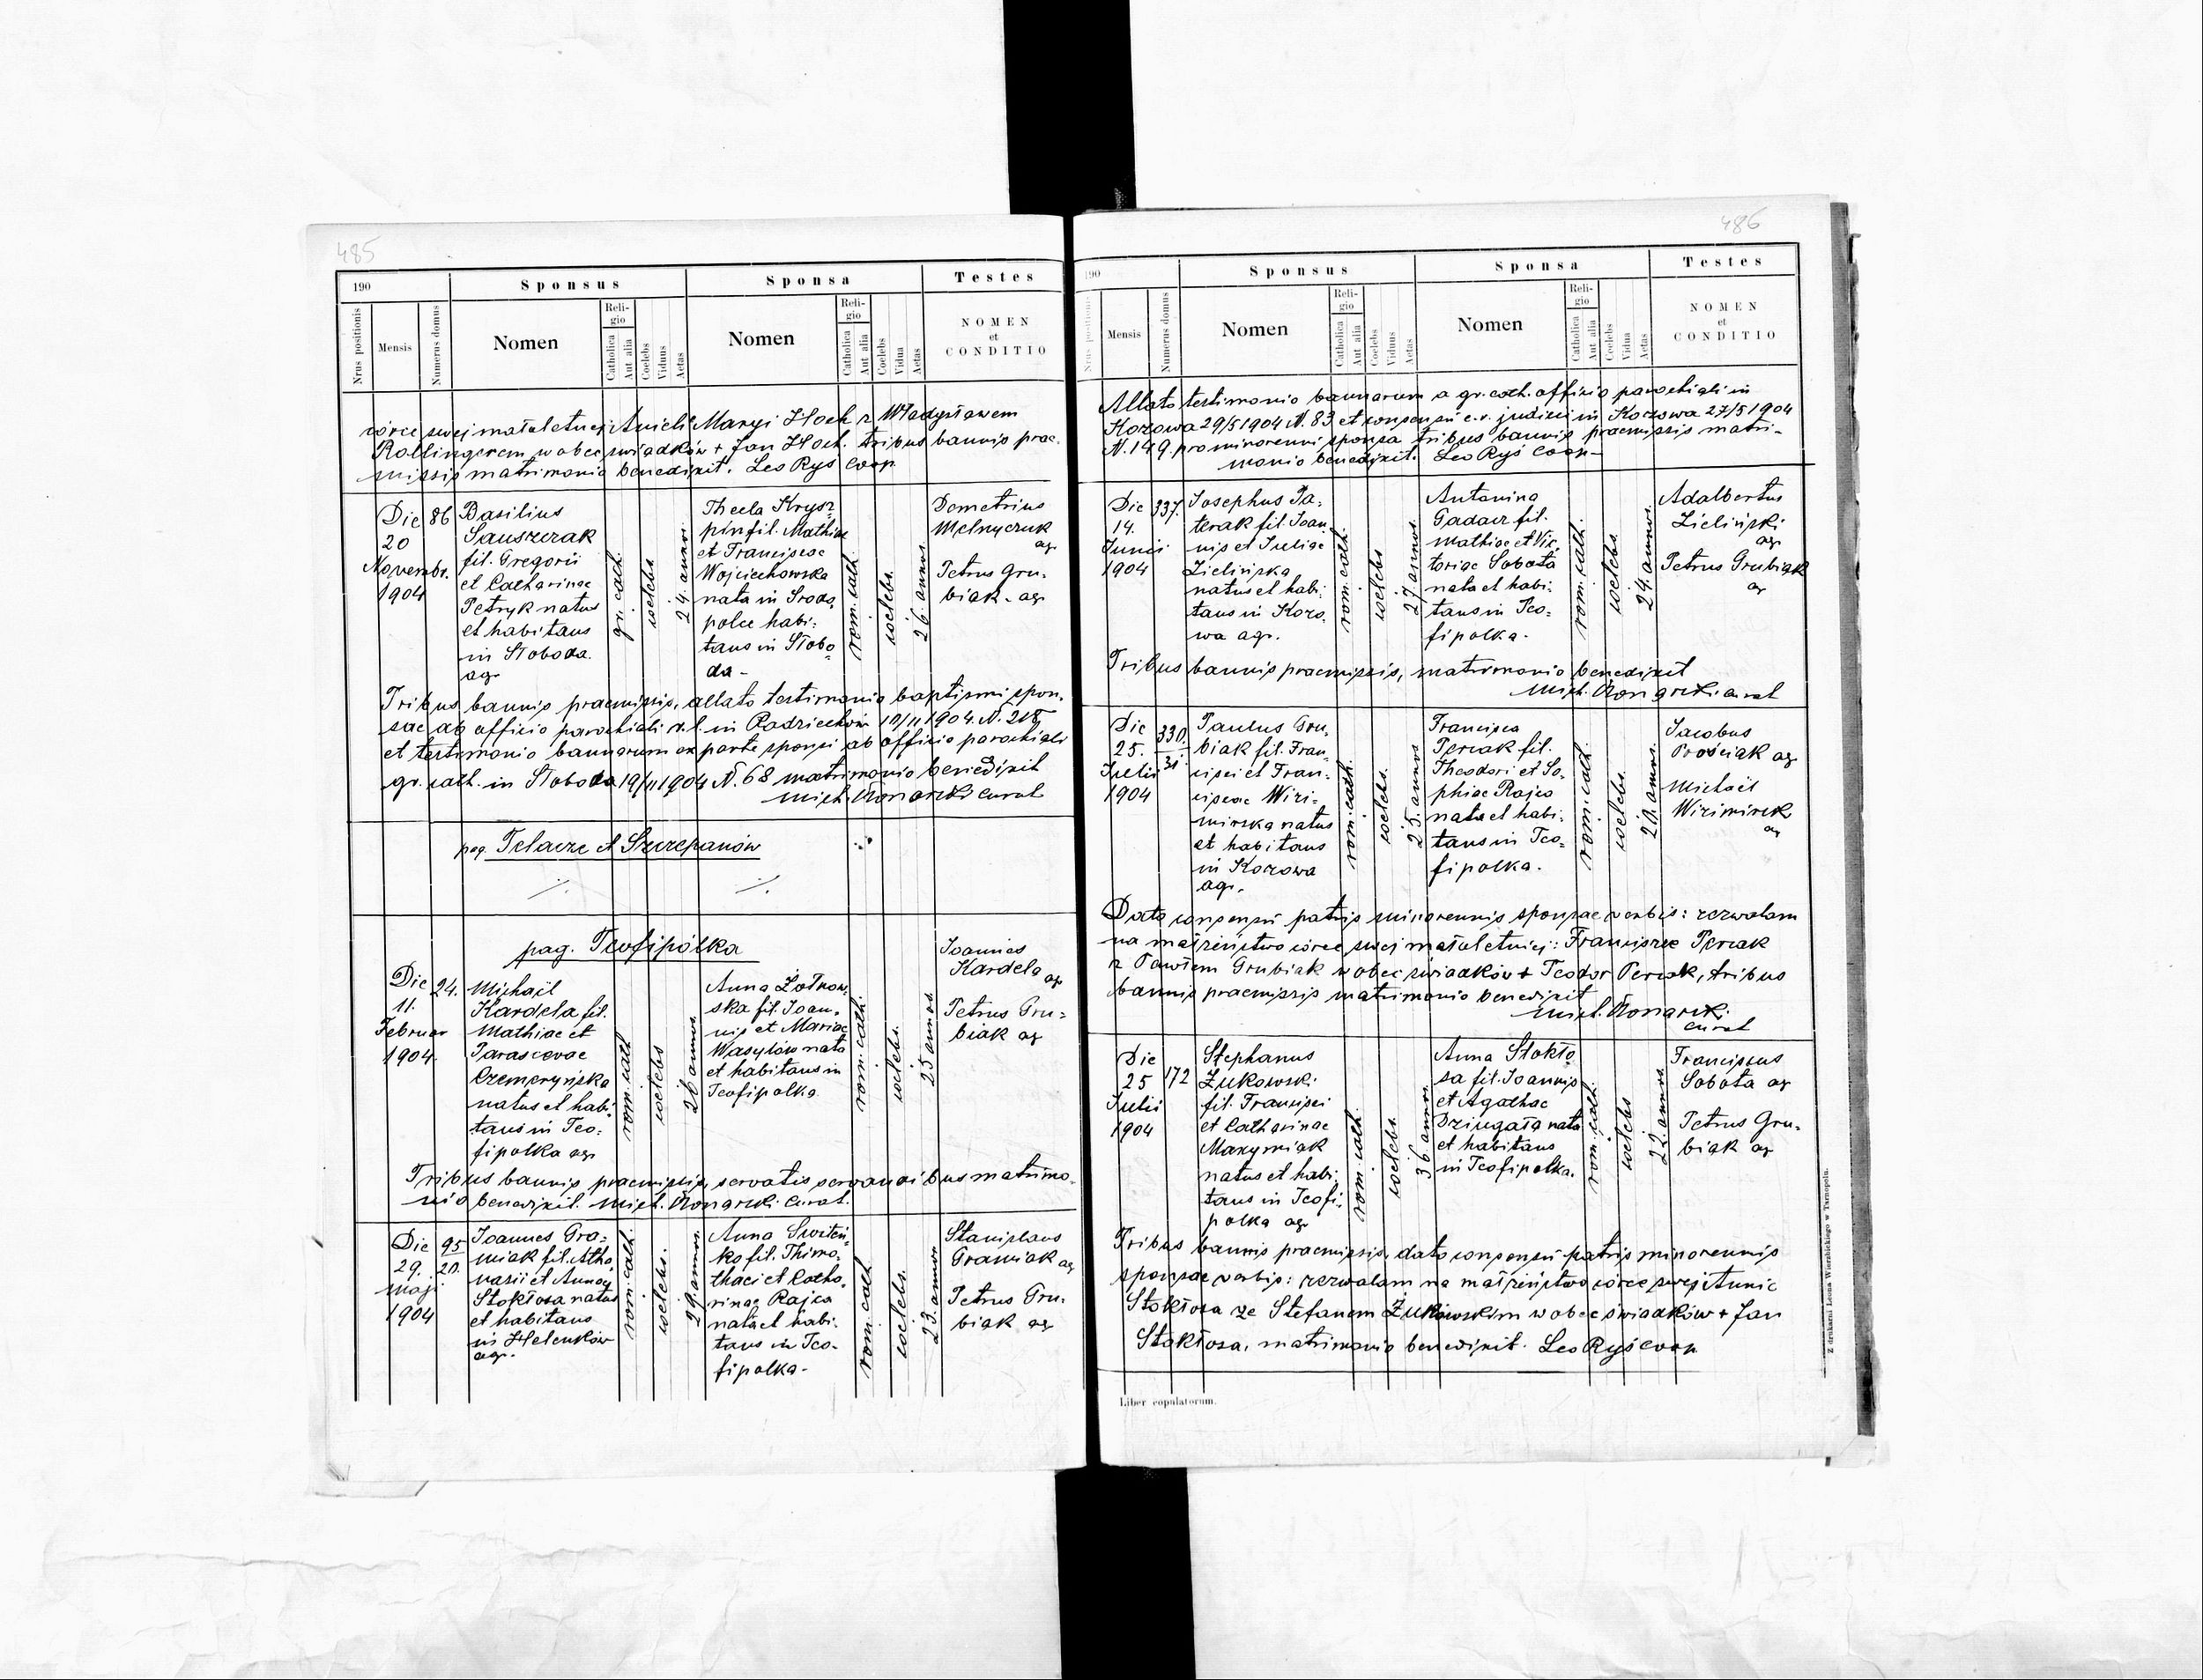 485
190
Sponsus
Sponsa
Testes
Nrus positionis
Mensis
Numerus domus
Nomen
Religio
Catholica
Aut alia
Coelebs
Viduus
Aetas
Nomen
Religio
Catholica
Aut alia
Coelebs
Vidua
Aetas
NOMEN
et
CONDITIO
córce swej małoletniej Anieli Maryi Hoch z Władysławem
Rollingerem wobec świadków + Jan Hoch. tribus bannis prae-
missis matrimonio benedixit. Leo Ryś Coop
Die
20
Novembr.
1904
86
Basilius
Sauszczak
fil. Gregorii
et Catharinae
Petryk natus
et habitans
in Słoboda.
agr
gr. cath.
coelebs
24. annor.
Thecla Krysz-
pin fil. Mathiae
et Franciscae
Wojciechowska
nata in Srodo,
polce habi-
tans in Słobo-
da -
rom. cath.
coelebs.
26. annor.
Demetrius
Melnyczuk
agr
Petrus Gru-
biak - agr
Tribus bannis praemissis, allato testimonio baptismi spon-
sae ab officio parochiali r.l. in Radziechów 10/11 1904. N. 218
et testimonio bannorum ex parte sponsi ab officio parochiali
gr. cath. in Słoboda 19/11 1904 N. 68 matrimonio benedixit
Mich. Konarski Curat
pag. Telacze et Szczepanów
pag. Teofipólka
Die
11.
Februar
1904
24.
Michaël
Kardela fil.
Mathiae et
Parascevae
Czemeryńska
natus et habi-
tans in Teo-
fipolka agr
rom. cath
coelebs
26 annor.
Anna Żołnow-
ska fil. Joan-
nis et Mariae
Wasylów nata
et habitans in
Teofipolka
rom. cath.
coelebs.
25 annor
Joannes
Kardela agr
Petrus Gru-
biak agr
Tribus bannis praemissis, servatis servandibus matrimo-
nio benedixit. Mich. Konarski Curat.
Die
29.
Maji
1904
95
20.
Joannes Gra-
niak fil. Atha-
nasii et Annae
Stokłosa natus
et habitans
in Helenków
agr.
rom. cath.
coelebs.
29. annor.
Anna Switen-
ko fil. Thimo-
thaei et Catha-
rinae Rajca
nata et habi-
tans in Teo-
fipolka -
rom. cath
coelebs.
23. annor
Stanislaus
Graniak agr
Petrus Gru-
biak agr
486
190
Sponsus
Sponsa
Testes
Nrus positionis
Mensis
Numerus domus
Nomen
Religio
Catholica
Aut alia
Coelebs
Viduus
Aetas
Nomen
Religio
Catholica
Aut alia
Coelebs
Vidua
Aetas
NOMEN
et
CONDITIO
Allato testimonio bannorum a gr. cath. officio parochiali in
Kozowa 29/5 1904 N. 83 et consensu c.r. judicii in Kozowa 27/5 1904
N. 149. pro minorenni sponsa tribus bannis praemissis matri-
monio benedixit. Leo Ryś Coop-
Die
14.
Junii
1904
337.
Josephus Pa-
terak fil. Joan-
nis et Juliae
Zielińska
natus et habi-
tans in Kozo-
wa agr.
rom. cath.
coelebs
27 annor.
Antonina
Gadacz fil.
Mathiae et Vic-
toriae Sobota
nata et habi-
tans in Teo-
fipolka.
rom. cath.
coelebs
24. annor.
Adalbertus
Zieliński
agr
Petrus Grubiak
agr
Tribus bannis praemissis, matrimonio benedixit
Mich. Konarski Curat
Die
25.
Julii
1904
330.
31.
Paulus Gru-
biak fil. Fran-
cisci et Fran-
ciscae Wizi-
mirska natus
et habitans
in Kozowa
agr.
rom. cath.
coelebs.
25. annor
Francisca
Perzak fil.
Theodori et So-
phiae Rajca
nata et habi-
tans in Teo-
fipolka.
rom. cath.
coelebs.
20. annor.
Jacobus
Prościak agr
Michaël
Wizimirek
agr
Dato consensu patris minorennis sponsae verbis: zezwalam
na małżeństwo córce swej małoletniej: Franciszce Perzak
z Pawłem Grubiak wobec świadków + Teodor Perzak, tribus
bannis praemissis matrimonio benedixit
Mich. Konarski
Curat
Die
25
Julii
1904
172
Stephanus
Żukowski
fil. Francisci
et Catharinae
Maxymiak
natus et habi-
tans in Teofi-
polka agr
rom. cath.
coelebs.
36 annor.
Anna Stokło-
sa fil. Joannis
et Agathae
Dziugała nata
et habitans
in Teofipolka.
rom. cath.
coelebs
22. annor.
Franciscus
Sobota agr
Petrus Gru-
biak agr
Tribus bannis praemissis, dato consensu patris minorennis
sponsae verbis: zezwalam na małżeństwo córce swej Annie
Stokłosa ze Stefanem Żukowskim wobec świadków + Jan
Stokłosa, matrimonio benedixit. Leo Ryś coop
Liber copulatorum.
Z drukarni Leona Wierzbickiego w Tarnopolu.